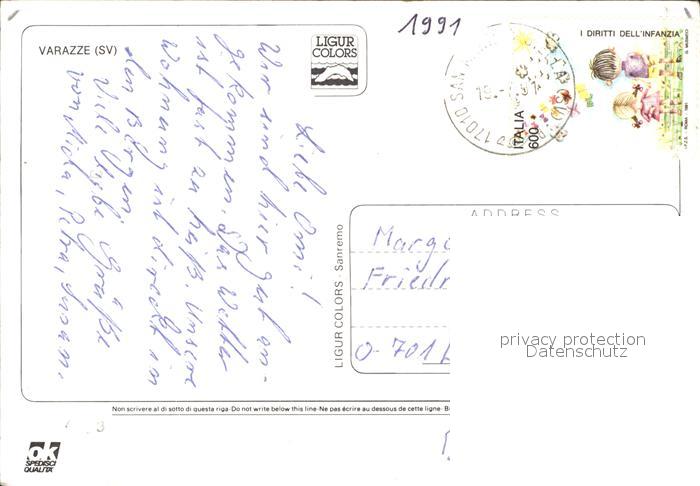 1991
VARAZZE (SV)
LIGUR
COLORS
I DIRITTI DELL'INFANZIA
ITALIA
600
17010 SAN
Liebe Omi!
Wir sind hier gut an-
gekommen. Das Wetter
ist fast zu heiß. Unsere
Wohnung ist direkt in
den Bergen!
Viele liebe Grüße
von Micha, Petra, Susann.
LIGUR COLORS - Sanremo
ADDRESS
Marg
Friedr
O-701
privacy protection
Datenschutz
Non scrivere al di sotto di questa riga-Do not write below this line-Ne pas écrire au dessous de cette ligne-
ok
SPEDISCI
QUALITÀ